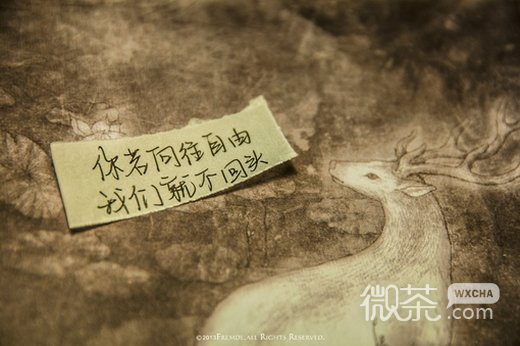 你若向往自由
我们就不回头
微茶 WXCHA
.com
©2013FREMDE.ALL RIGHTS RESERVED.